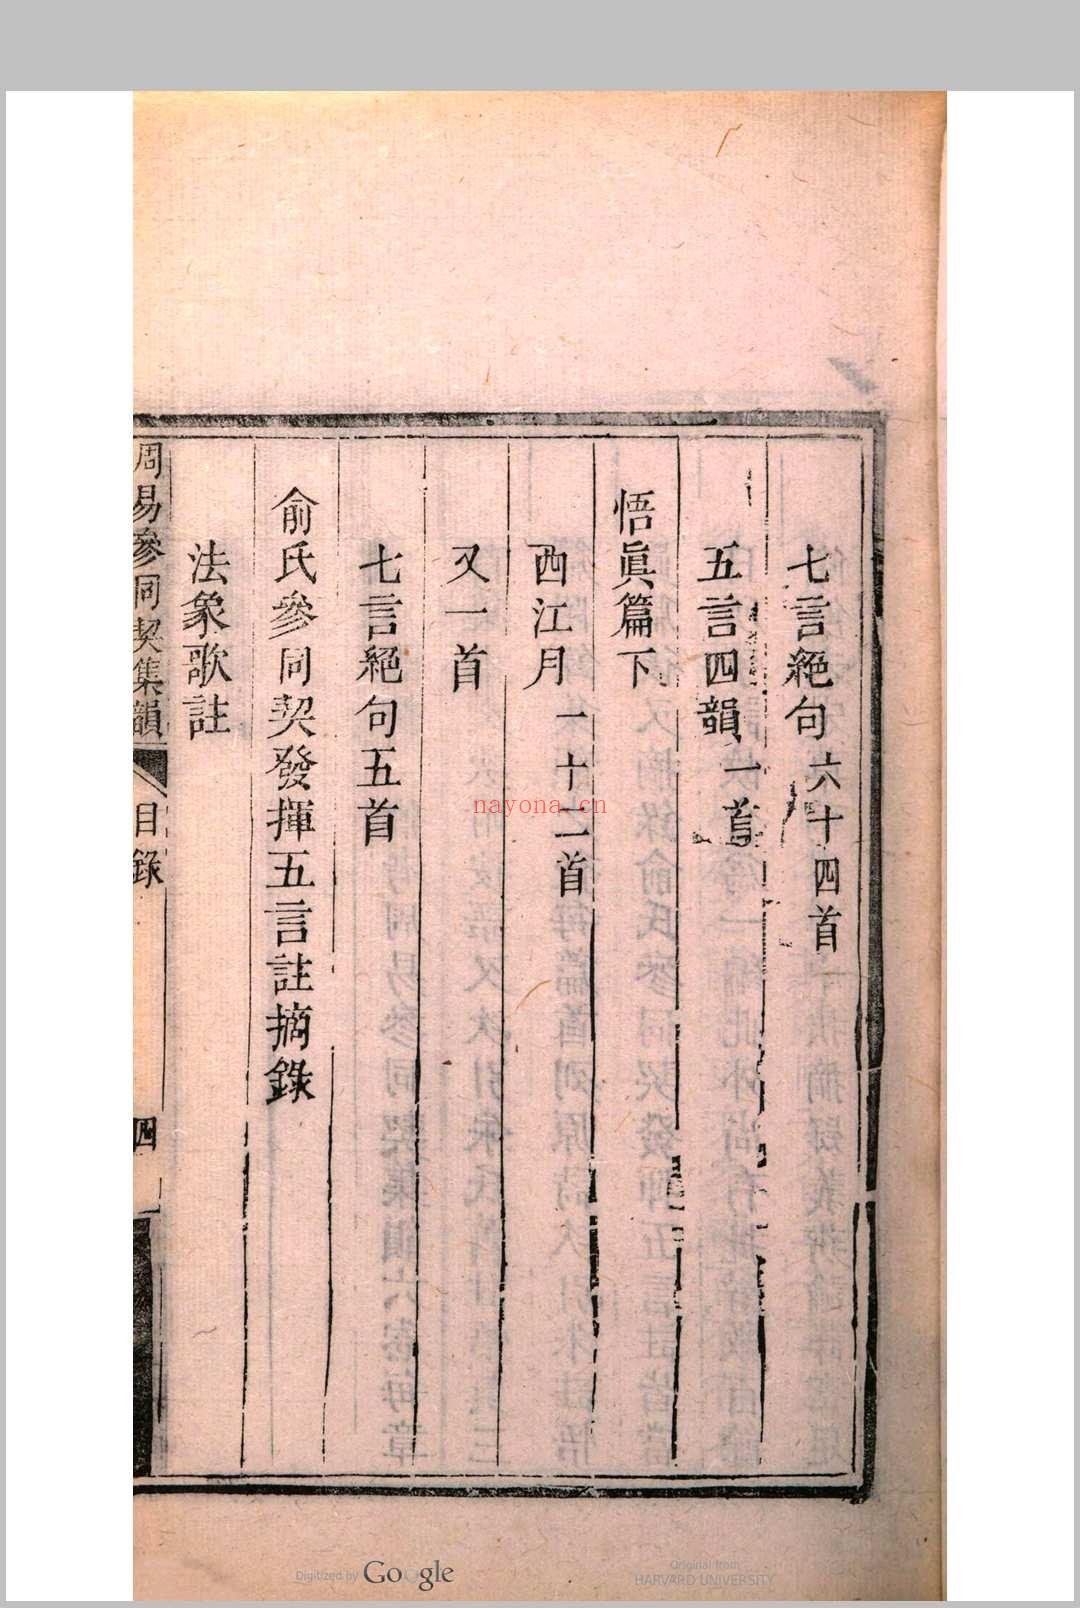 七言絕句六十四首
五言四韻一首
悟眞篇下
西江月一十二首
又一首
七言絕句五首
俞氏參同契發揮五言註摘錄
法象歌註
周易參同契集韻 目錄 四
nayona.cn
Digitized by Google
Original from
HARVARD UNIVERSITY